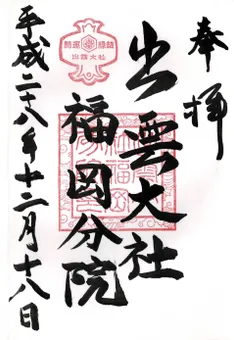 奉拝
出雲大社
福岡分院
平成二十八年十二月十八日
出雲大社